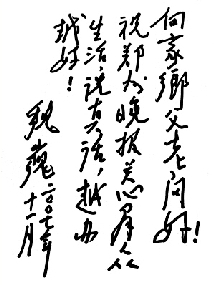 向家乡父老问好!
祝郑州晚报关心群众
生活,说真话,越办
越好!
魏巍
二〇〇七年
十一月